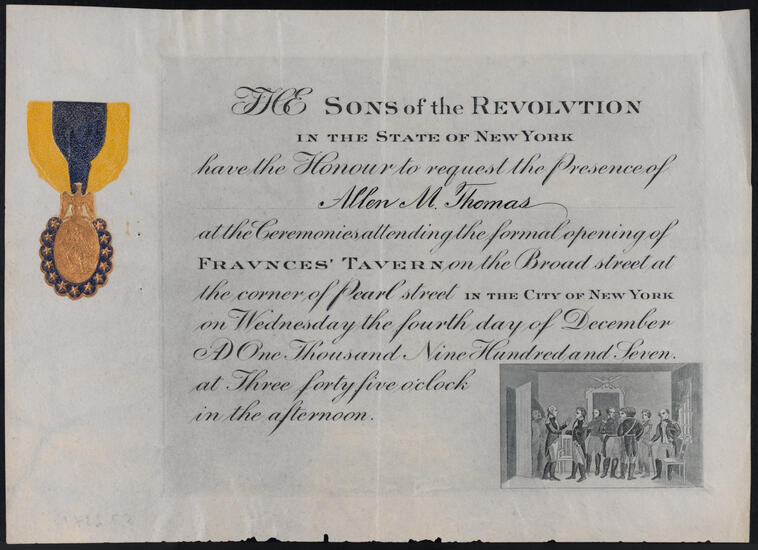 THE SONS of the REVOLVTION
IN THE STATE OF NEW YORK
have the Honour to request the Presence of
Allen M. Thomas
at the Ceremonies, attending the formal opening of
FRAVNCES' TAVERN, on the Broad street at
the corner, of Pearl street IN THE CITY OF NEW YORK
on Wednesday the fourth day of December
AD One Thousand Nine Hundred and Seven.
at Three forty five o'clock
in the afternoon.